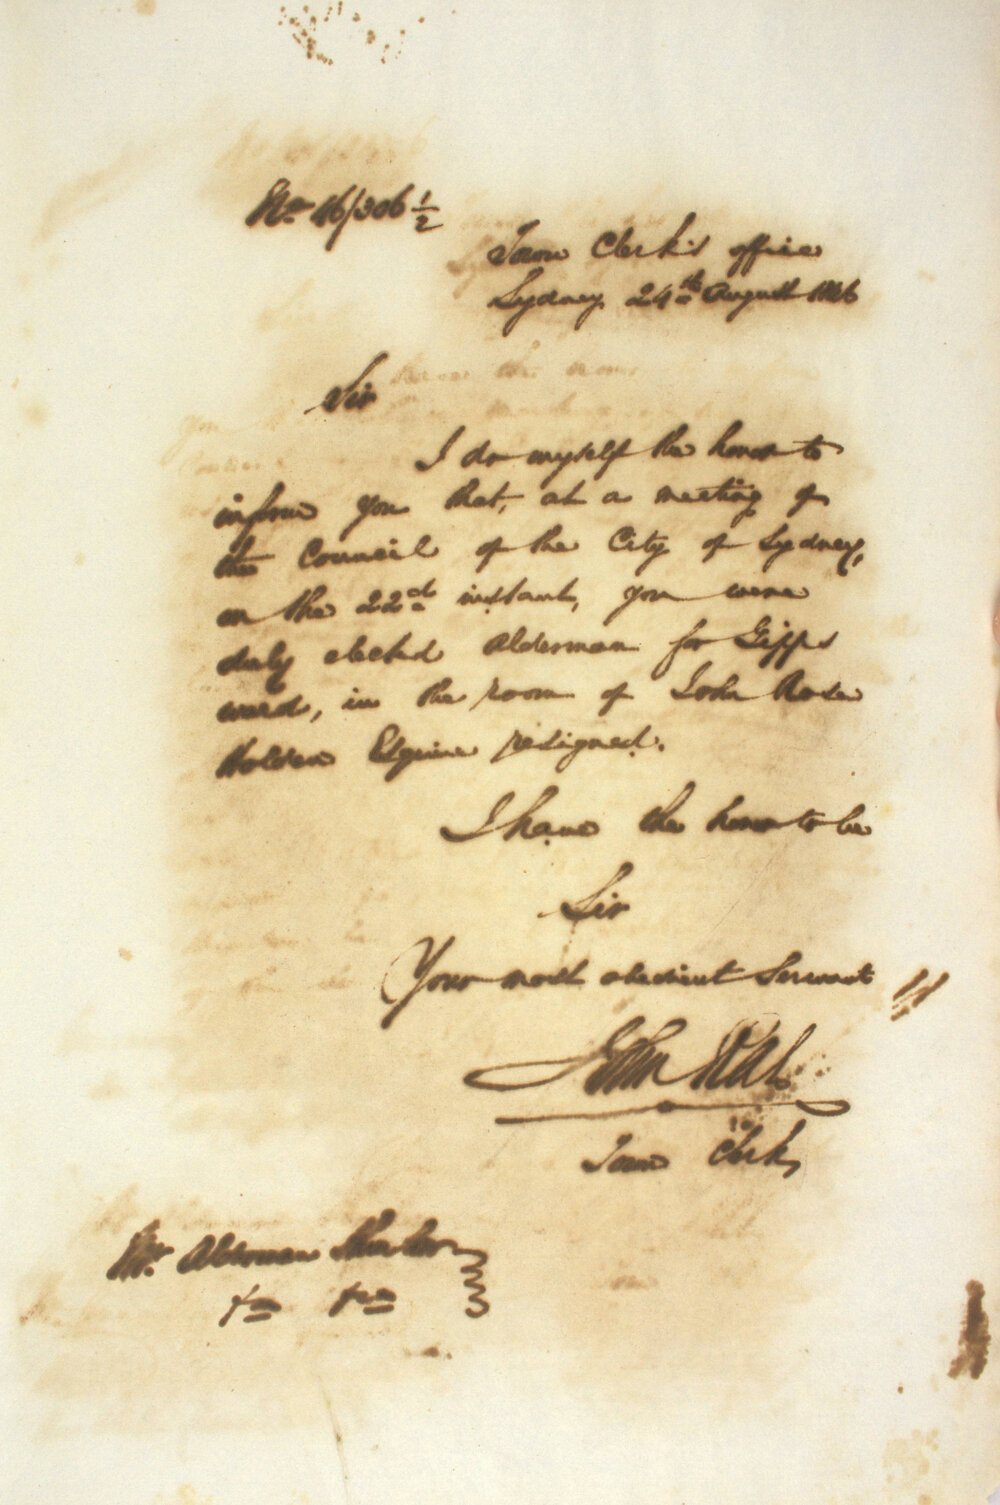 No 46/306 1/2
Town Clerk's office
Sydney 24th August 1846
Sir
I do myself the honor to
inform you that, at a meeting of
the Council of the City of Sydney,
on the 22nd instant, you were
duly elected Alderman for Gipps
ward, in the room of John Rose
Holden Esquire resigned.
I have the honor to be
Sir
Your most obedient Servant
John Rae
Town Clerk
Mr. Alderman
&c &c